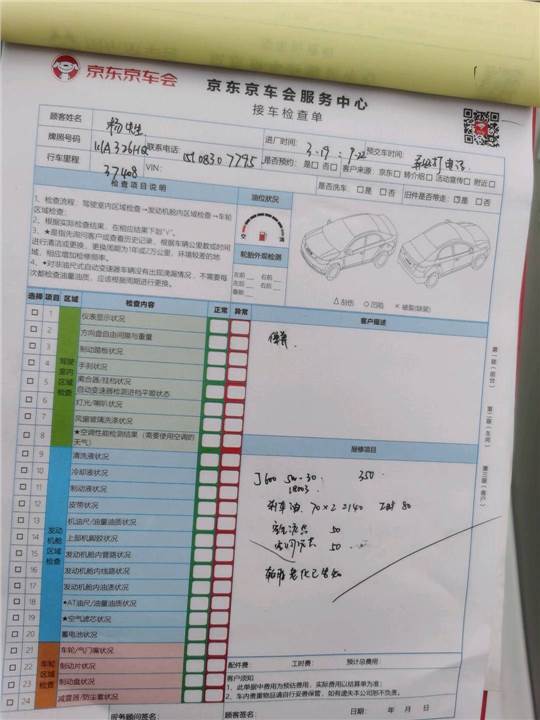 京东京车会
京东京车会服务中心
接车检查单
顾客姓名
进厂时间: 3-19 预交车时间:
牌照号码 联系电话: 15108307795 是否预约: 是 否 客户来源: 京东 转介绍 活动宣传 附近
行车里程 37408 VIN: 是否洗车 是 否 旧件是否带走: 是 否
检查项目说明 油位状况
1、检查流程: 驾驶室内区域检查→发动机舱内区域检查→车轮区域检查;
2、根据实际检查结果, 在相应结果下划"√";
3、★是指先询问客户或查看历史记录, 根据车辆公里数或时间进行清洁或更换, 更换周期为1年或2万公里, 环境较差的地域, 相应增加检修频率。
4、•对非油尺式自动变速器车辆没有出现渗漏情况, 不需要每次都检查油量油质, 应该根据周期进行更换。
空 满
轮胎外观检测
左前 右前
左后 右后
△ 刮伤 ○ 凹陷 × 破裂(缺装)
选择 项目 区域 检查内容 正常 异常 客户描述
驾驶室内区域检查
1 仪表显示状况
2 方向盘自由间隙与重量
3 制动踏板状况
4 手刹状况
5 离合器/挂档状况 自动变速器检测进档平顺状态
6 灯光/喇叭状况
7 风窗玻璃洗涤状况
8 ★空调性能检测结果 (需要使用空调的天气)
保养
发动机舱区域检查
报修项目
9 清洗液状况
10 冷却液状况
11 制动液状况
12 皮带状况
13 机油尺/油量油质状况
14 上部机脚胶状况
15 发动机舱内管路状况
16 发动机舱内线路状况
17 发动机舱内油渍状况
18 •AT油尺/油量油质状况
19 ★空气滤芯状况
20 蓄电池状况
350
刹车油 70×2 2140 工时 80
50
50
车轮区域检查
21 车轮/气门嘴状况
22 制动片状况
23 制动盘状况
24 减震器/防尘套状况
配件费: 工时费: 预计总费用:
客户须知
1、此单据中费用为预估费用, 实际费用以结算单为准;
2、车内贵重物品请自行妥善保管, 如有遗失本公司恕不负责。
服务顾问签名: 顾客签名: 日期: 年 月 日
第一联(前台)
第二联(车间)
第三联(客户)